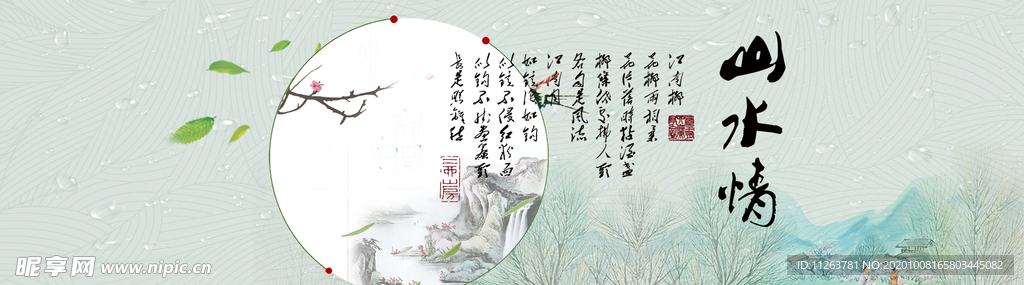 山水情
江南柳
花柳兩相柔
花片落時黏酒盞
柳條低處拂人頭
各自是風流
江南月
如鏡復如鉤
似鏡不侵紅粉面
似鉤不掛畫簾頭
長是照離愁
昵享网 www.nipic.cn
ID:11263781 NO:20201008165803445082